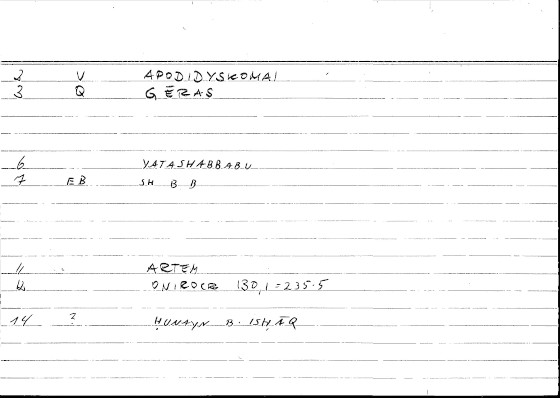 2 V APODIDYSKOMAI
3 Q GĒRAS
6 YATASHABBABU
7 EB SH B B
11 ARTEM
12 ONIROCR 130,1 = 235.5
14 ? ḤUNAYN B. ISḤĀQ